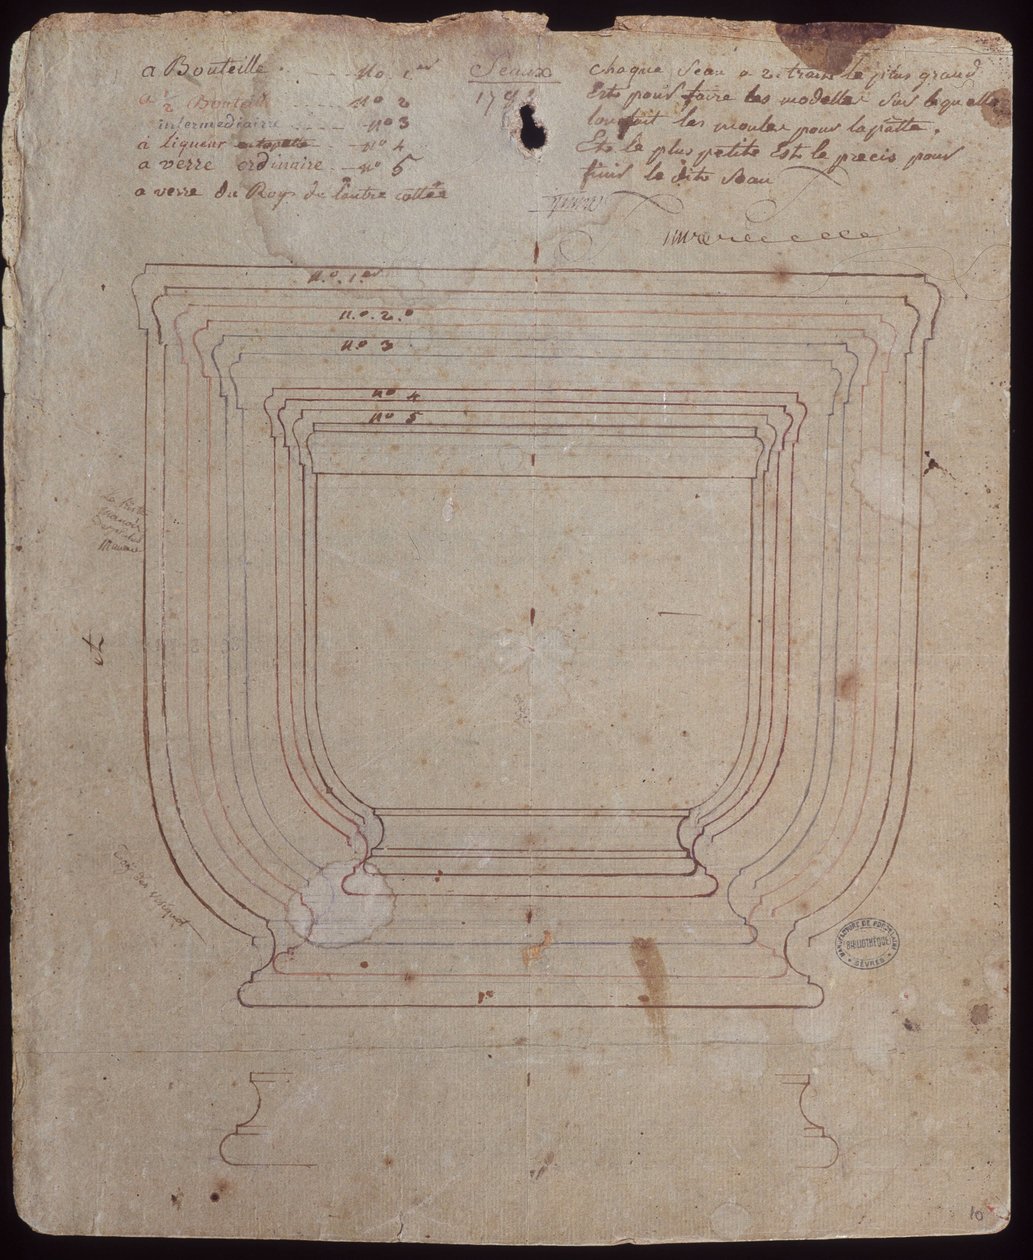 a Bouteille No. 1er
a ½ Bouteille No 2
intermediairre no 3
a liqueur no 4
a verre ordinaire no 5
a verre du Roy de l'autre cottée
Seaux
179
chaque Seau a 2. traits le plus grand
Est pour faire les modelle sur lequelle
lon fait les moules pour la patte.
Et le plus petite Est le precis pour
finir le dite Seau
n.o. 1.er
n.o. 2.o
n.o 3
no 4
no 5
et
MANUFACTURE DE PORCELAINE
BIBLIOTHÈQUE
SÈVRES
10